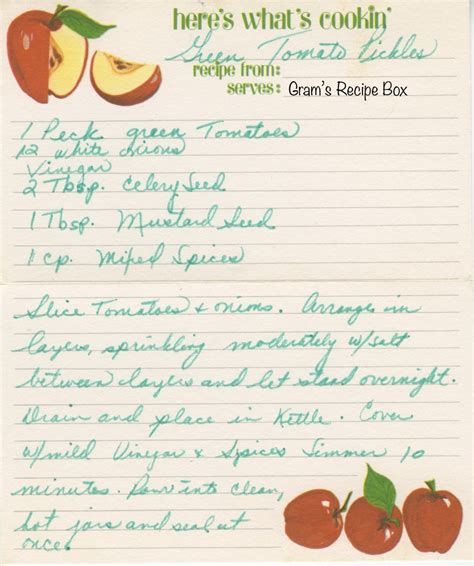 here's what's cookin'
Green Tomato Pickles
recipe from:
serves: Gram's Recipe Box
1 Peck green Tomatoes
12 white onions
Vinegar
2 Tbsp. Celery Seed
1 Tbsp. Mustard Seed
1 cp. Mixed Spices
Slice Tomatoes & onions. Arrange in
layers, sprinkling moderately w/salt
between layers and let stand overnight.
Drain and place in Kettle. Cover
w/mild Vinegar & Spices Simmer 10
minutes. Pour into clean,
hot jars and seal at
once.